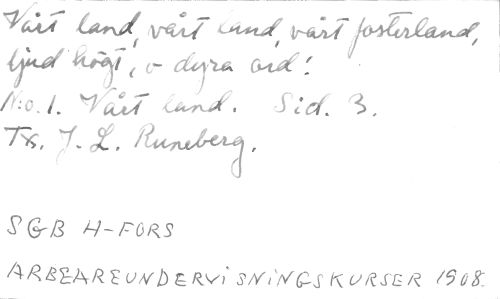 Vårt land, vårt land, vårt fosterland,
ljud högt, o dyra ord!
N:o.1. Vårt land. Sid. 3.
Tx. J. L. Runeberg.
SGB H-FORS
ARBEAREUNDERVISNINGSKURSER 1908.